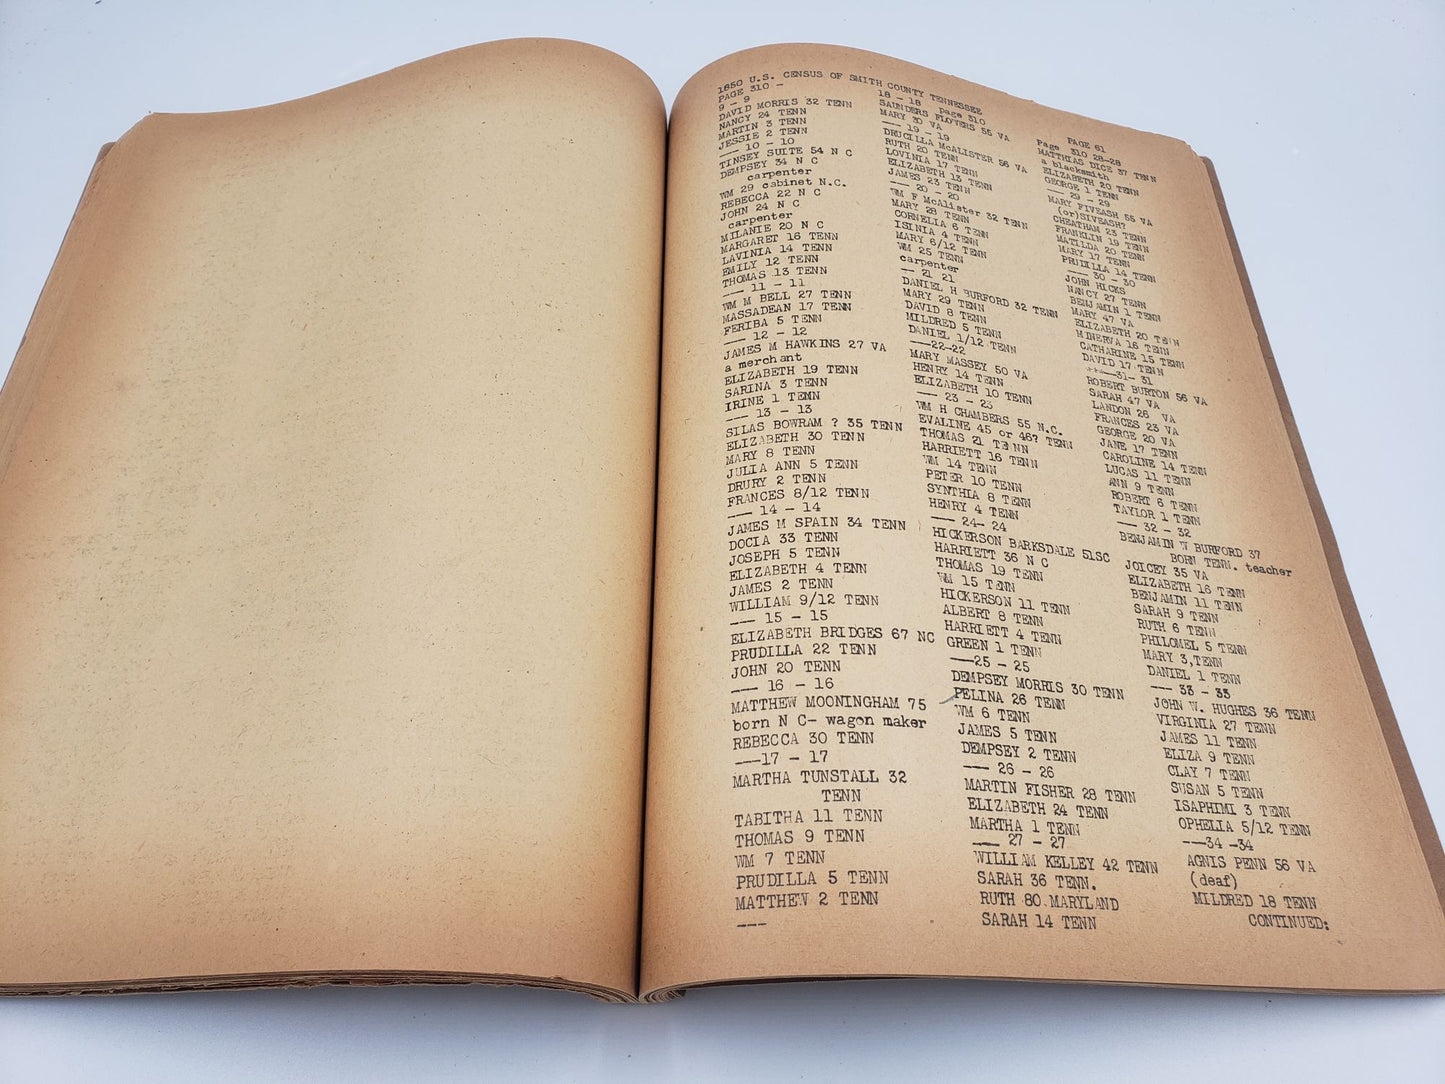 1850 U.S. CENSUS OF SMITH COUNTY TENNESSEE
PAGE 61
PAGE 310 -
9 - 9
DAVID MORRIS 32 TENN
NANCY 24 TENN
MARTIN 3 TENN
JESSIE 2 TENN
--- 10 - 10
TINSEY SUITE 54 N C
DEMPSEY 34 N C
carpenter
WM 29 cabinet N.C.
REBECCA 22 N C
JOHN 24 N C
carpenter
MILANIE 20 N C
MARGARET 16 TENN
LAVINIA 14 TENN
EMILY 12 TENN
THOMAS 13 TENN
--- 11 - 11
WM M BELL 27 TENN
MASSADEAN 17 TENN
FERIBA 5 TENN
--- 12 - 12
JAMES M HAWKINS 27 VA
a merchant
ELIZABETH 19 TENN
SARINA 3 TENN
IRINE 1 TEMN
--- 13 - 13
SILAS BOWRAM ? 35 TENN
ELIZABETH 30 TENN
MARY 8 TENN
JULIA ANN 5 TENN
DRURY 2 TENN
FRANCES 8/12 TENN
--- 14 - 14
JAMES M SPAIN 34 TENN
DOCIA 33 TENN
JOSEPH 5 TENN
ELIZABETH 4 TENN
JAMES 2 TENN
WILLIAM 9/12 TENN
--- 15 - 15
ELIZABETH BRIDGES 67 NC
PRUDILLA 22 TENN
JOHN 20 TENN
--- 16 - 16
MATTHEW MOONINGHAM 75
born N C- wagon maker
REBECCA 30 TENN
---17 - 17
MARTHA TUNSTALL 32
TENN
TABITHA 11 TENN
THOMAS 9 TENN
WM 7 TENN
PRUDILLA 5 TENN
MATTHEW 2 TENN
---
18 - 18 page 310
SAUNDERS FLOWERS 55 VA
MARY 30 VA
--- 19 - 19
DRUCILLA McALISTER 56 VA
RUTH 20 TENN
LOVINIA 17 TENN
ELIZABETH 13 TENN
JAMES 23 TENN
--- 20 - 20
WM F McAlister 32 TENN
MARY 28 TENN
CORNELIA 6 TENN
ISINIA 4 TENN
MARY 6/12 TENN
WM 25 TENN
carpenter
-- 21 21
DANIEL H BURFORD 32 TENN
MARY 29 TENN
DAVID 8 TENN
MILDRED 5 TENN
DANIEL 1/12 TENN
---22-22
MARY MASSEY 50 VA
HENRY 14 TENN
ELIZABETH 10 TENN
--- 23 - 23
WM H CHAMBERS 55 N.C.
EVALINE 45 or 46? TENN
THOMAS 21 TENN
HARRIETT 16 TENN
WM 14 TENN
PETER 10 TENN
SYNTHIA 8 TENN
HENRY 4 TENN
--- 24- 24
HICKERSON BARKSDALE 51SC
HARRIETT 36 N C
THOMAS 19 TENN
WM 15 TENN
HICKERSON 11 TENN
ALBERT 8 TENN
HARRIETT 4 TENN
GREEN 1 TENN
---25 - 25
DEMPSEY MORRIS 30 TENN
PELINA 26 TENN
WM 6 TENN
JAMES 5 TENN
DEMPSEY 2 TENN
--- 26 - 26
MARTIN FISHER 28 TENN
ELIZABETH 24 TENN
MARTHA 1 TENN
--- 27 - 27
WILLIAM KELLEY 42 TENN
SARAH 36 TENN.
RUTH 80 MARYLAND
SARAH 14 TENN
Page 310 28-28
MATTHIAS DICE 37 TENN
a blacksmith
ELIZABETH 20 TENN
GEORGE 1 TENN
--- 29 - 29
MARY FIVEASH 55 VA
(or)SIVEASH?
CHEATHAM 23 TENN
FRANKLIN 19 TENN
MATILDA 20 TENN
MARY 17 TENN
PRUDILLA 14 TENN
--- 30 - 30
JOHN HICKS
NANCY 27 TENN
BENJAMIN 1 TENN
MARY 47 VA
ELIZABETH 20 TENN
MINERVA 16 TENN
CATHARINE 15 TENN
DAVID 17 TENN
---31- 31
ROBERT BURTON 56 VA
SARAH 47 VA
LANDON 26 VA
FRANCES 23 VA
GEORGE 20 VA
JANE 17 TENN
CAROLINE 14 TENN
LUCAS 11 TENN
ANN 9 TENN
ROBERT 6 TENN
TAYLOR 1 TENN
--- 32 - 32
BENJAMIN W BURFORD 37
BORN TENN. teacher
JOICEY 35 VA
ELIZABETH 16 TENN
BENJAMIN 11 TENN
SARAH 9 TENN
RUTH 6 TENN
PHILOMEL 5 TENN
MARY 3,TENN
DANIEL 1 TENN
--- 33 - 33
JOHN W. HUGHES 36 TENN
VIRGINIA 27 TENN
JAMES 11 TENN
ELIZA 9 TENN
CLAY 7 TENN
SUSAN 5 TENN
ISAPHIMI 3 TENN
OPHELIA 5/12 TENN
---34 -34
AGNIS PENN 56 VA
(deaf)
MILDRED 18 TENN
CONTINUED: